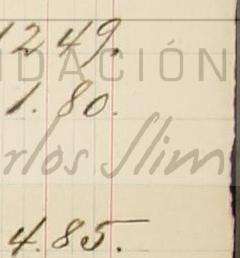 1249.
DACIÓN
1.80.
rlos Slim
4.85.